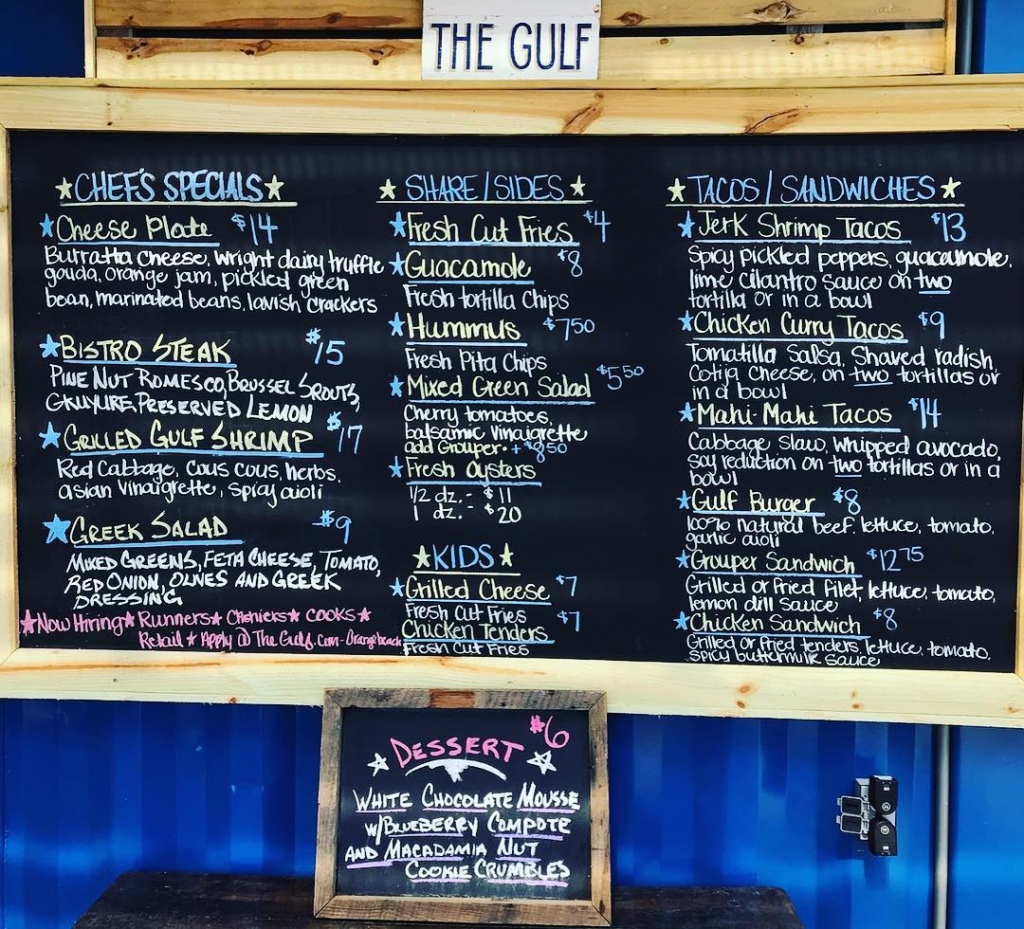 THE GULF
CHEF'S SPECIALS
Cheese Plate $14
Burratta cheese, wright dairy truffle
gouda, orange jam, pickled green
bean, marinated beans, lavish crackers
BISTRO STEAK $15
PINE NUT ROMESCO, BRUSSEL SPROUTS,
GRUYURE, PRESERVED LEMON
GRILLED GULF SHRIMP $17
Red Cabbage, Cous cous, herbs,
asian vinaigrette, spicy aioli
GREEK SALAD $9
MIXED GREENS, FETA CHEESE, TOMATO,
RED ONION, OLIVES AND GREEK
DRESSING
Now Hiring Runners Cashiers COOKS
Retail Apply @ The Gulf.com-Orangebeach
SHARE/SIDES
Fresh Cut Fries $4
Guacamole $8
Fresh tortilla Chips
Hummus $7.50
Fresh Pita Chips
Mixed Green Salad $5.50
Cherry tomatoes,
balsamic vinaigrette
add Grouper + $8.50
Fresh Oysters
1/2 dz. - $11
1 dz. - $20
KIDS
Grilled Cheese $7
Fresh Cut Fries
Chicken Tenders $7
Fresh Cut Fries
TACOS/SANDWICHES
Jerk Shrimp Tacos $13
Spicy pickled peppers, guacamole,
lime cilantro sauce on two
tortilla or in a bowl
Chicken Curry Tacos $9
Tomatilla Salsa, Shaved radish,
Cotija Cheese, on two tortillas or
in a bowl
Mahi-Mahi Tacos $14
Cabbage Slaw, whipped avocado,
soy reduction on two tortillas or in a
bowl
Gulf Burger $8
100% natural beef, lettuce, tomato,
garlic aioli
Grouper Sandwich $12.75
Grilled or fried filet, lettuce, tomato,
lemon dill sauce
Chicken Sandwich $8
Grilled or fried tenders, lettuce, tomato,
spicy buttermilk sauce
DESSERT $6
WHITE CHOCOLATE MOUSSE
W/BLUEBERRY COMPOTE
AND MACADAMIA NUT
COOKIE CRUMBLES